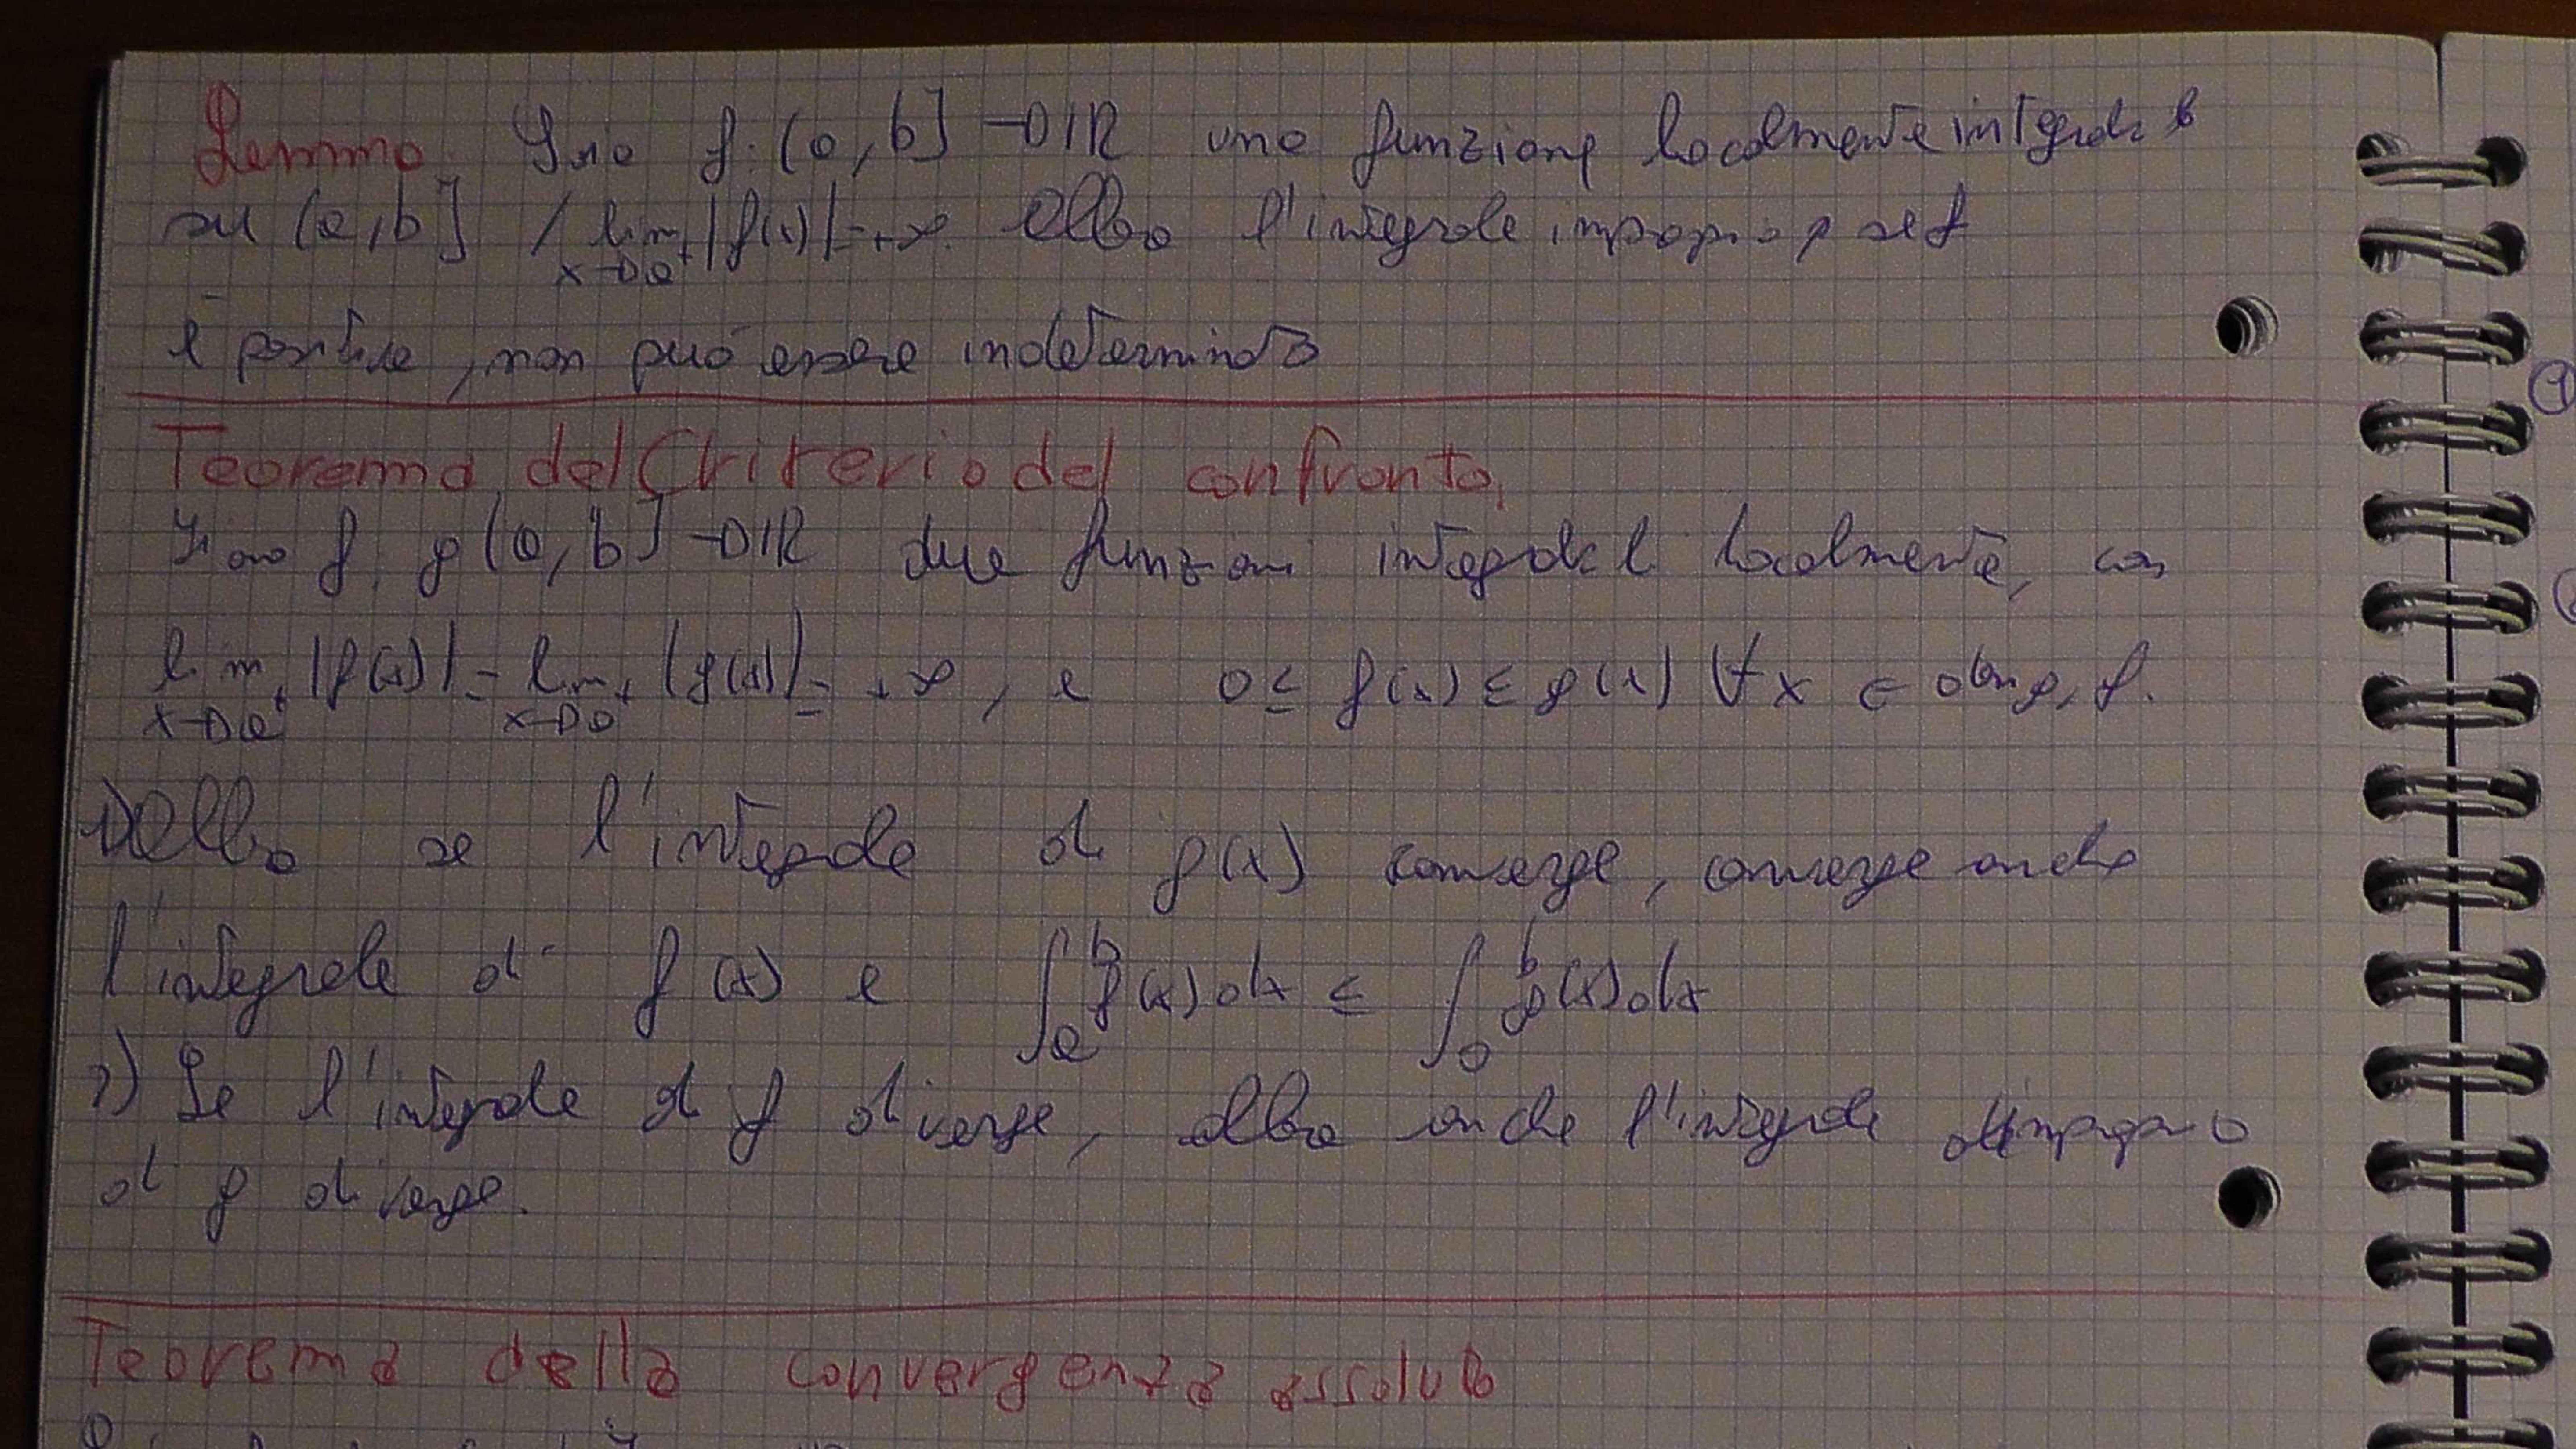 Lemma. Sia f: (a, b] → ℝ una funzione localmente integrabile
su (a, b] / lim x→a⁺ |f(x)| = +∞. Allora l'integrale improprio, se f
è positiva, non può essere indeterminato
Teorema del Criterio del confronto.
Siano f, g (a, b] → ℝ due funzioni integrabili localmente, con
lim x→a⁺ |f(x)| = lim x→a⁺ |g(x)| = +∞, e 0 ≤ f(x) ≤ g(x) ∀x ∈ dom g, f.
1) Allora se l'integrale di g(x) converge, converge anche
l'integrale di f(x) e ∫ₐᵇ f(x) dx ≤ ∫ₐᵇ g(x) dx
2) Se l'integrale di f diverge, allora anche l'integrale improprio
di g diverge.
Teorema della convergenza assoluta